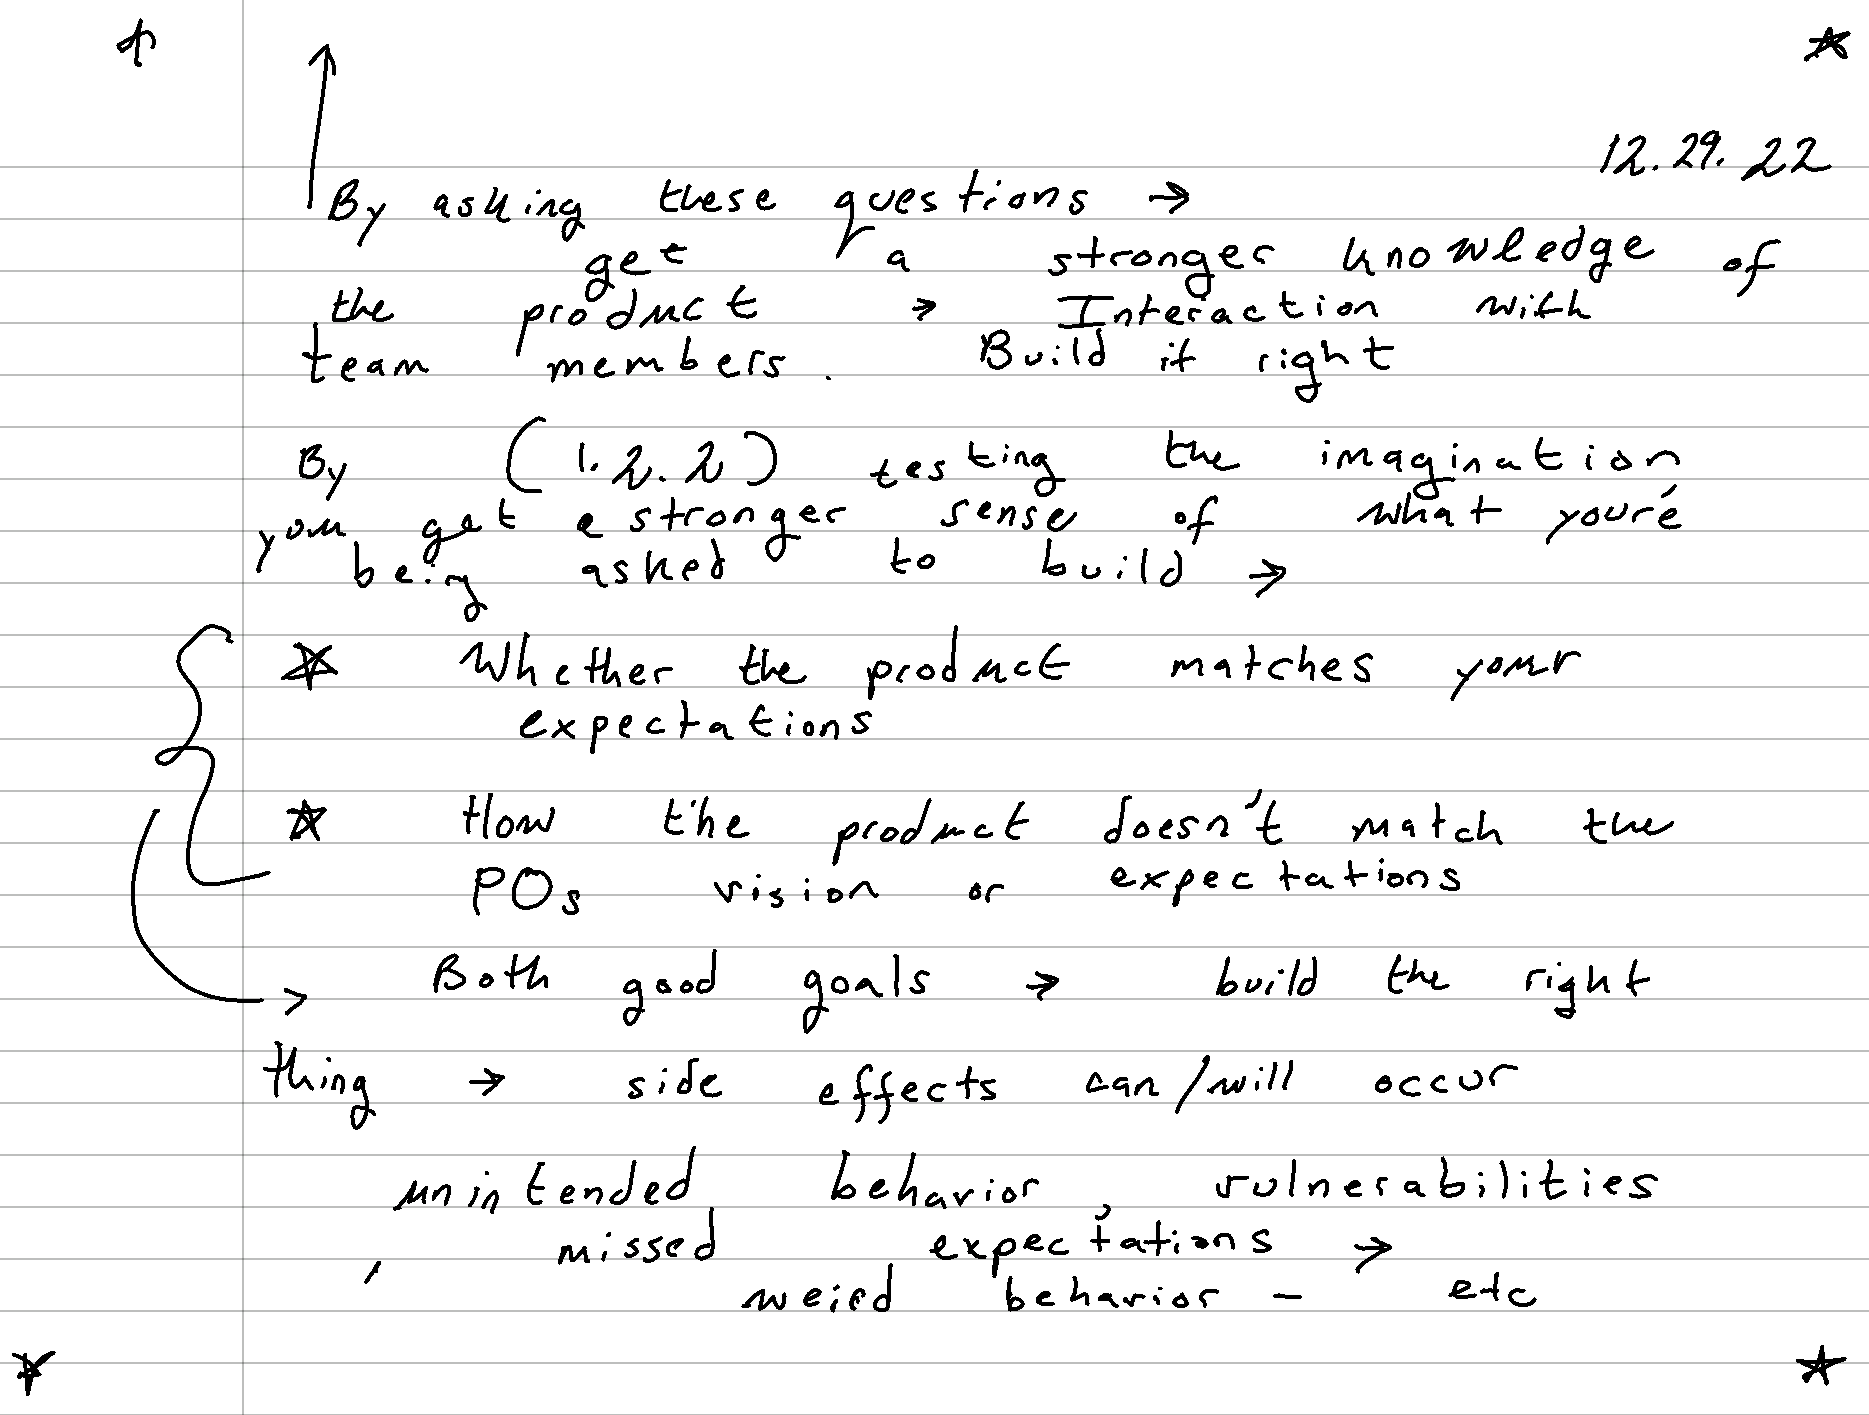 12.29.22
By asking these questions →
get a stronger knowledge of
the product → Interaction with
team members. Build it right
By (1.2.2) testing the imagination
you get a stronger sense of what you're
being asked to build →
☆ Whether the product matches your
expectations
☆ How the product doesn't match the
POs vision or expectations
→ Both good goals → build the right
thing → side effects can/will occur
unintended behavior, vulnerabilities
, missed expectations →
weird behavior - etc